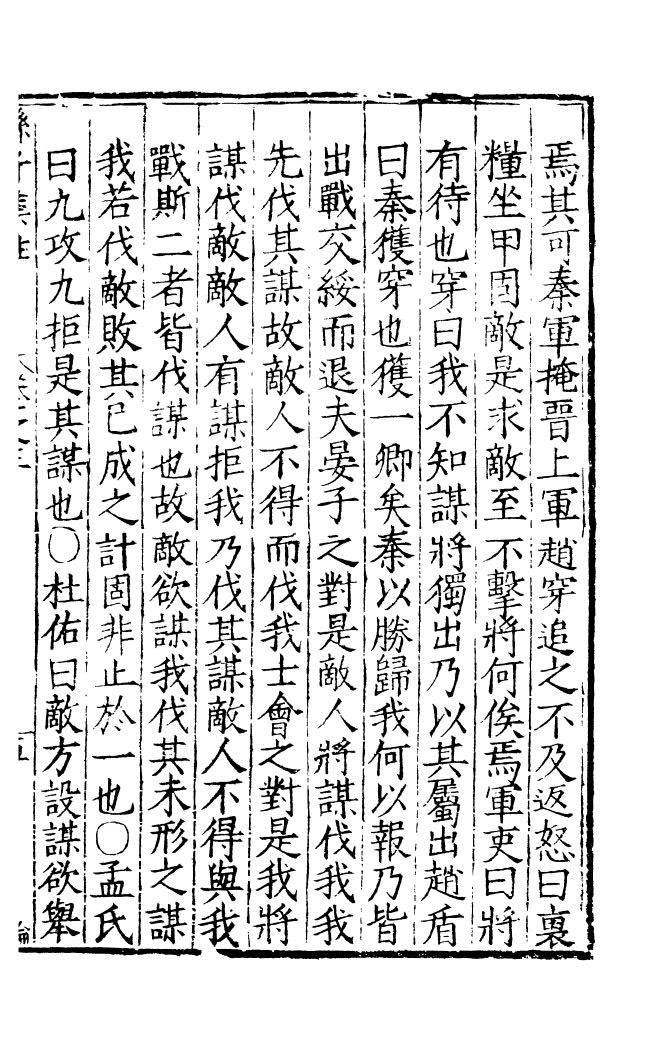 焉其可秦軍掩晉上軍趙穿追之不及返怒曰裏
糧坐甲固敵是求敵至不擊將何俟焉軍吏曰將
有待也穿曰我不知謀將獨出乃以其屬出趙盾
曰秦獲穿也獲一卿矣秦以勝歸我何以報乃皆
出戰交綏而退夫晏子之對是敵人將謀伐我我
先伐其謀故敵人不得而伐我士會之對是我將
謀伐敵敵人有謀拒我乃伐其謀敵人不得與我
戰斯二者皆伐謀也故敵欲謀我伐其未形之謀
我若伐敵敗其已成之計固非止於一也〇孟氏
曰九攻九拒是其謀也〇杜佑曰敵方設謀欲舉